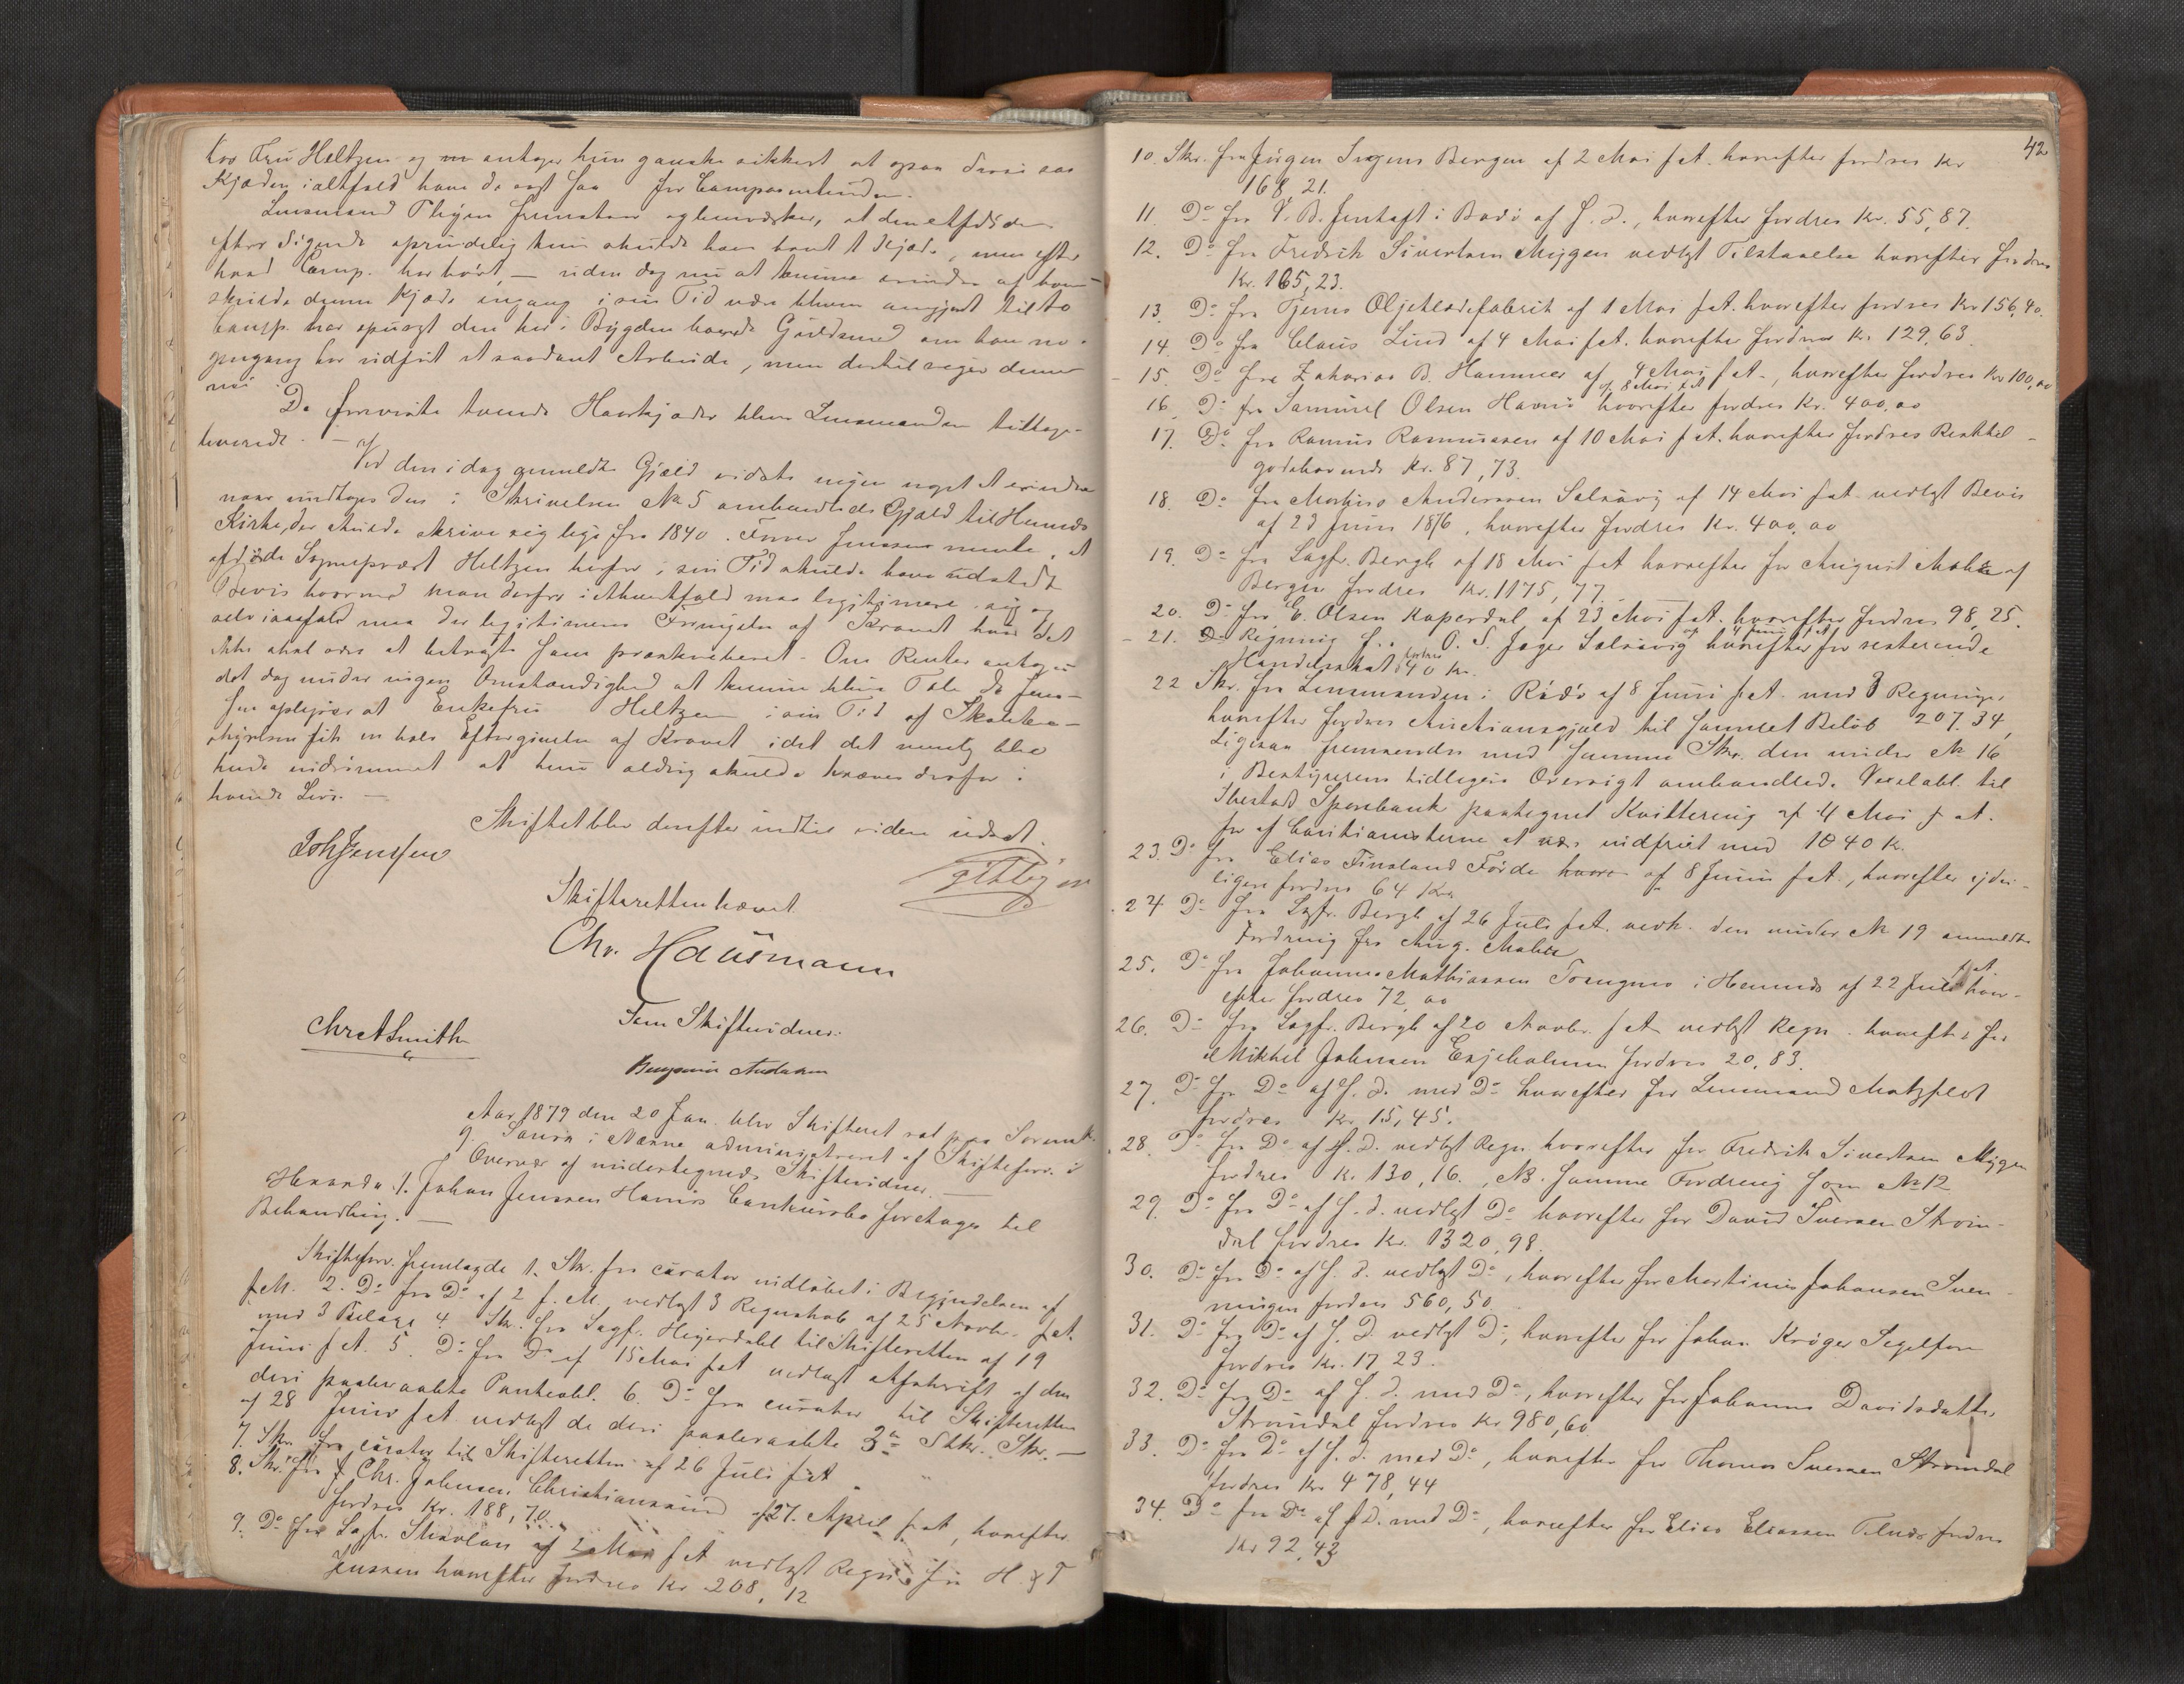 hos Fru Heltzen og antager hun ganske sikkert at ogsaa disse
Kjæder ialtfald have de
Lensmand fremstod og bemærker, at den afdøde
efter Sigende oprindelig kun skulde have havt 1 Kjæde, men efter
hvad Comp. har hørt, — uden dog nu at kunne erindre af hvem —
skulde denne Kjæde engang i sin Tid være bleven omgjort til to
Comp. har spurgt den her i Bygden boende Guldsmed om han no-
gengang har udført et saadant Arbeide, men dertil siger denne
nei.
De foreviste tvende Haarkjæder blev Lensmanden tilbage-
leverede. —
Ved den i dag anmeldte Gjæld vidste ingen noget at erindre
naar undtages den i Skrivelsen No 5 omhandlede Gjæld til Hemnes
Kirke, der skulde skrive sig lige fra 1840. Jenssen mente, at
afdøde Sogneprest Heltzen herfor i sin Tid skulde have udstedt
Bevis hvormed man derfor i Skiftefald maa legitimere sig og
selv isaafald maa der legitimeres Fornyelse af Kravet hvis det
ikke skal være at betragte som præskriberet. Om Renter antages
det dog under ingen Omstændighed at kunne blive Tale da Jens-
sen oplyser at Enkefru Heltzen i sin Tid af
fik en hel Eftergivelse af Kravet idet det nemlig blev
hende indrømmet at hun aldrig skulde kræves derfor i
hendes Live. —
Skiftet blev derefter indtil videre udsat.
Joh Jenssen
Skifteretten hævet.
Chr. Hausmann
Som Skiftevidner:
Chr A Smith
Benjamin Andersen
Aar 1879 den 20 Jan. blev Skifteret sat paa
g. i Næsne administreret af Skifteforv. i
Overvær af undertegnede Skiftevidner. —
Hvorda: 1. Johan Jenssen Havnøs Concursbo foretages til
Behandling. —
Skifteforv. fremlagde 1. Skr. fra curator indløbet i Begyndelsen af
f. M. 2. Do fra Do af 2 f. M. vedlagt 3 Regnskab af 25 Novbr. f. A.
med 3 Bilage 4. Skr. fra Sagf. til Skifteretten af 19
Juni f A. 5. Do fra Do af 15 Mai f A vedlagt Afskrift af den
deri paaberaabte Panteobl. 6. Do fra curator til Skifteretten
af 28 Juni f A. vedlagt de deri paaberaabte 3de Stkr. Skr. —
7. Skr. fra curator til Skifteretten af 26 Juli f A
8. Skr. fra J Chr. Johnsen. Christianssund af 27. April f. A, hvorefter
fordres Kr. 188,70.
9. Do fra Sagfr. af 2 Mai f A vedlagt Regn. fra H. & T
Jenssen hvorefter fordres Kr 208,12
42
10. Skr. fra Jørgen Bergen af 2 Mai f A. hvorefter fordres Kr
168,21.
11 Do fra V. B. Jentoft i Bodø af S. D., hvorefter fordres Kr. 55,87.
12. Do fra Fredrik Sivertsen Myggen vedlagt Tilstaaelse hvorefter fordres
Kr. 165,23.
13. Do fra Tjems Oljeklædefabrik af 1 Mai f A. hvorefter fordres Kr 156,40.
14 Do fra Claus Lind af 4 Mai f A. hvorefter fordres Kr. 129,63.
15. Do fra Zakarias B. Hammer af 4 Mai f A., hvorefter fordres Kr 100,00
16 Do fra Samuel Olsen Havnø af 8 Mai f A hvorefter fordres Kr. 400,00
17. Do fra Rasmus Rasmussen af 10 Mai f A. hvorefter fordres Resttil-
godehavende Kr. 87,73.
18. Do fra Markus Anderssen Selsøvig af 14 Mai f A vedlagt Bevis
af 23 Juni 1876, hvorefter fordres Kr. 400,00
19. Do fra Sagfr. Bergh af 18 Mai f A hvorefter for August Mohr af
Bergen fordres Kr. 1175,77.
20. Do fra E. Olsen Kaperdal af 23 Mai f A. hvorefter fordres 98,25.
21. Do Regning fra O. S. Jæger Selsøvig af 4 Juni f A hvorefter for resterende
Handelsskat fordres 40 Kr.
22 Skr. fra Lensmanden i Rødø af 8 Juni f A. med 3 Regninger
hvorefter fordres Auctionsgjæld til samlet Beløb 207.34,
Ligesaa fremsendes med samme Skr. den under No 16
i Bestyrerens tidligere Oversigt omhandlede Vexelobl. til
Ibestad Sparebank paategnet Kvittering af 4 Mai f A.
for af Cautionisterne at være indfriet med 1040 K.
23. Do fra Elias Finsland Førde af 8 Juni f A., hvorefter yder-
ligere fordres 64 Kr.
24 Do fra Sagfr. Bergh af 26 Juli f A. vedk. den under No 19 anmeldte
Fordring fra Aug. Mohr
25. Do fra Johannes Mathiassen i Hemnes af 22 Juli f A. hvor-
efter fordres 72,00
26. Do fra Sagfr. Bergh af 20 Novbr. f A vedlagt Regn. hvorefter for
Mikkel Johnsen fordres 20,83.
27. Do fra Do af S. D. med Do hvorefter for Lensmand Motzfeldt
fordres Kr. 15,45.
28. Do fra Do af S. D. vedlagt Regn. hvorefter for Fredrik Sivertsen Myggen
fordres Kr. 130,16., NB. samme Fordring som No 12
29. Do fra Do af S. D. vedlagt Do hvorefter for David Iversen Strøm-
dal fordres Kr. 1320,98.
30. Do fra Do af S. D. vedlagt Do, hvorefter for Martinus Johansen Sven-
ningen fordres 560,50
31. Do fra Do af S. D. vedlagt Do, hvorefter for Johan Krøger Segelfore
fordres Kr. 17,23.
32. Do fra Do af S. D. med Do, hvorefter for Johanna Davidsdatter
Strømdal fordres Kr 980,60
33. Do fra Do af S. D. med Do, hvorefter for Thomas Iversen Strømdal
fordres Kr. 478,44
34. Do fra Do af S D. med Do, hvorefter for Elias Eliassen fordres
Kr 92,43